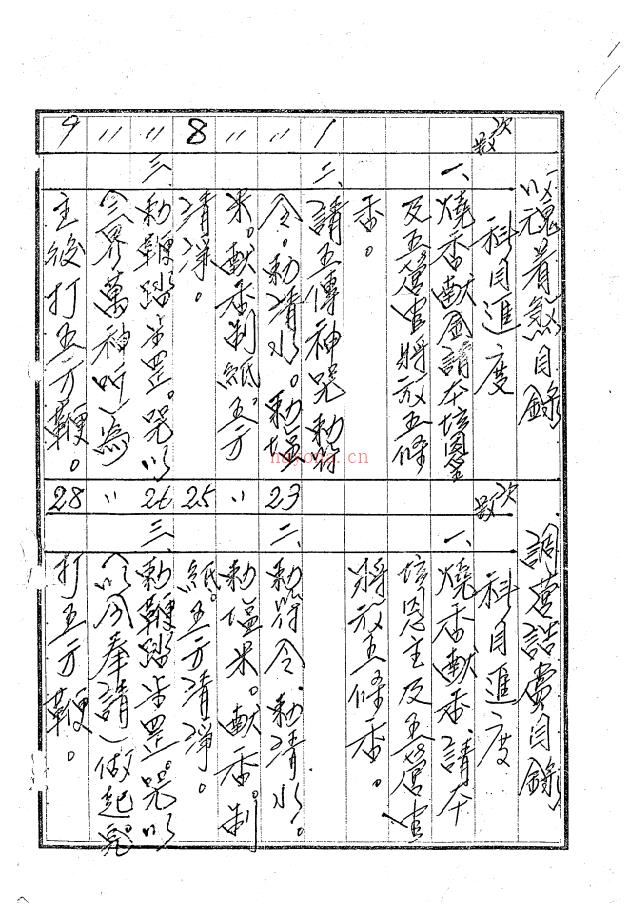 目錄
次數
科目進度
一、燒香獻金請本壇恩主
及五營官將放五條
香。
1
二、請五傳神咒勅符
〃
令。勅清水。勅塩
〃
米。獻香制紙五方
8
清淨。
〃
三、勅鞭踏步罡。咒以
〃
三界萬神听一為
9
主後打五方鞭。
調營請賞目錄
次數
科目進度
一、燒香獻香。請本
壇恩主及五營官
將放五條香。
23
二、勅符令。勅清水。
〃
勅塩米。獻香。制
25
紙。五方清淨。
26
三、勅鞭踏步罡。咒以
〃
奉請一做起
28
打五方鞭。
nayong.cn